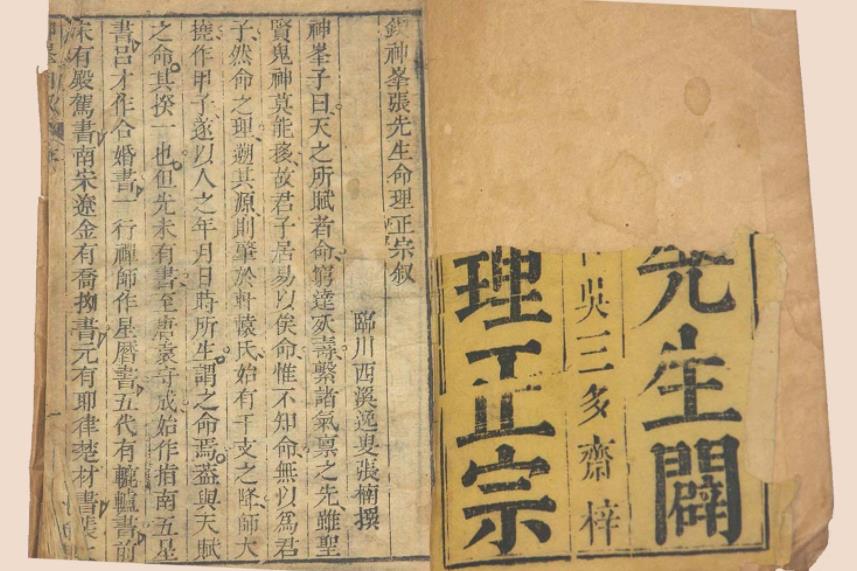 先生闢
吳三多齋梓
理正宗
神峯張先生命理正宗叙
臨川西溪逸叟張楠撰
神峯子曰天之所賦者命窮達殀壽繫諸氣禀之先雖聖
賢鬼神莫能移故君子居易以俟命惟不知命無以爲君
子然命之理遡其源則肇於軒轅氏始有干支之降師大
撓作甲子遂以人之年月日時所生謂之命焉葢與天賦
之命其揆一也但先未有書至唐袁守成始作指南五星
書呂才作合婚書一行禪師作星曆書五代有轆轤書前
宋有殿駕書南宋遼金有喬拗書元有耶律楚材書